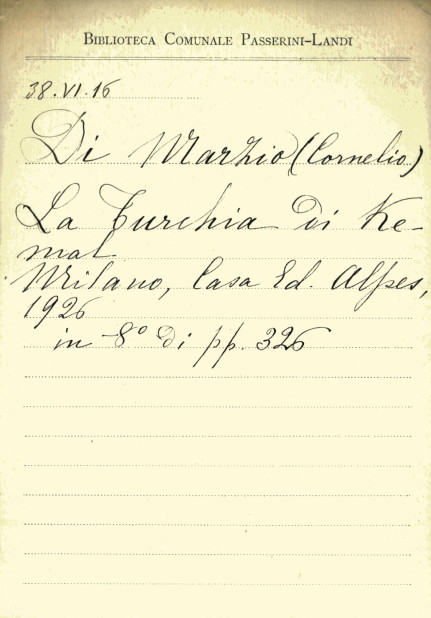 Biblioteca Comunale Passerini-Landi
38.VI.16
Di Marzio (Cornelio)
La Turchia di Ke-
mal
Milano, Casa Ed. Alpes,
1926
in 8° di pp. 326